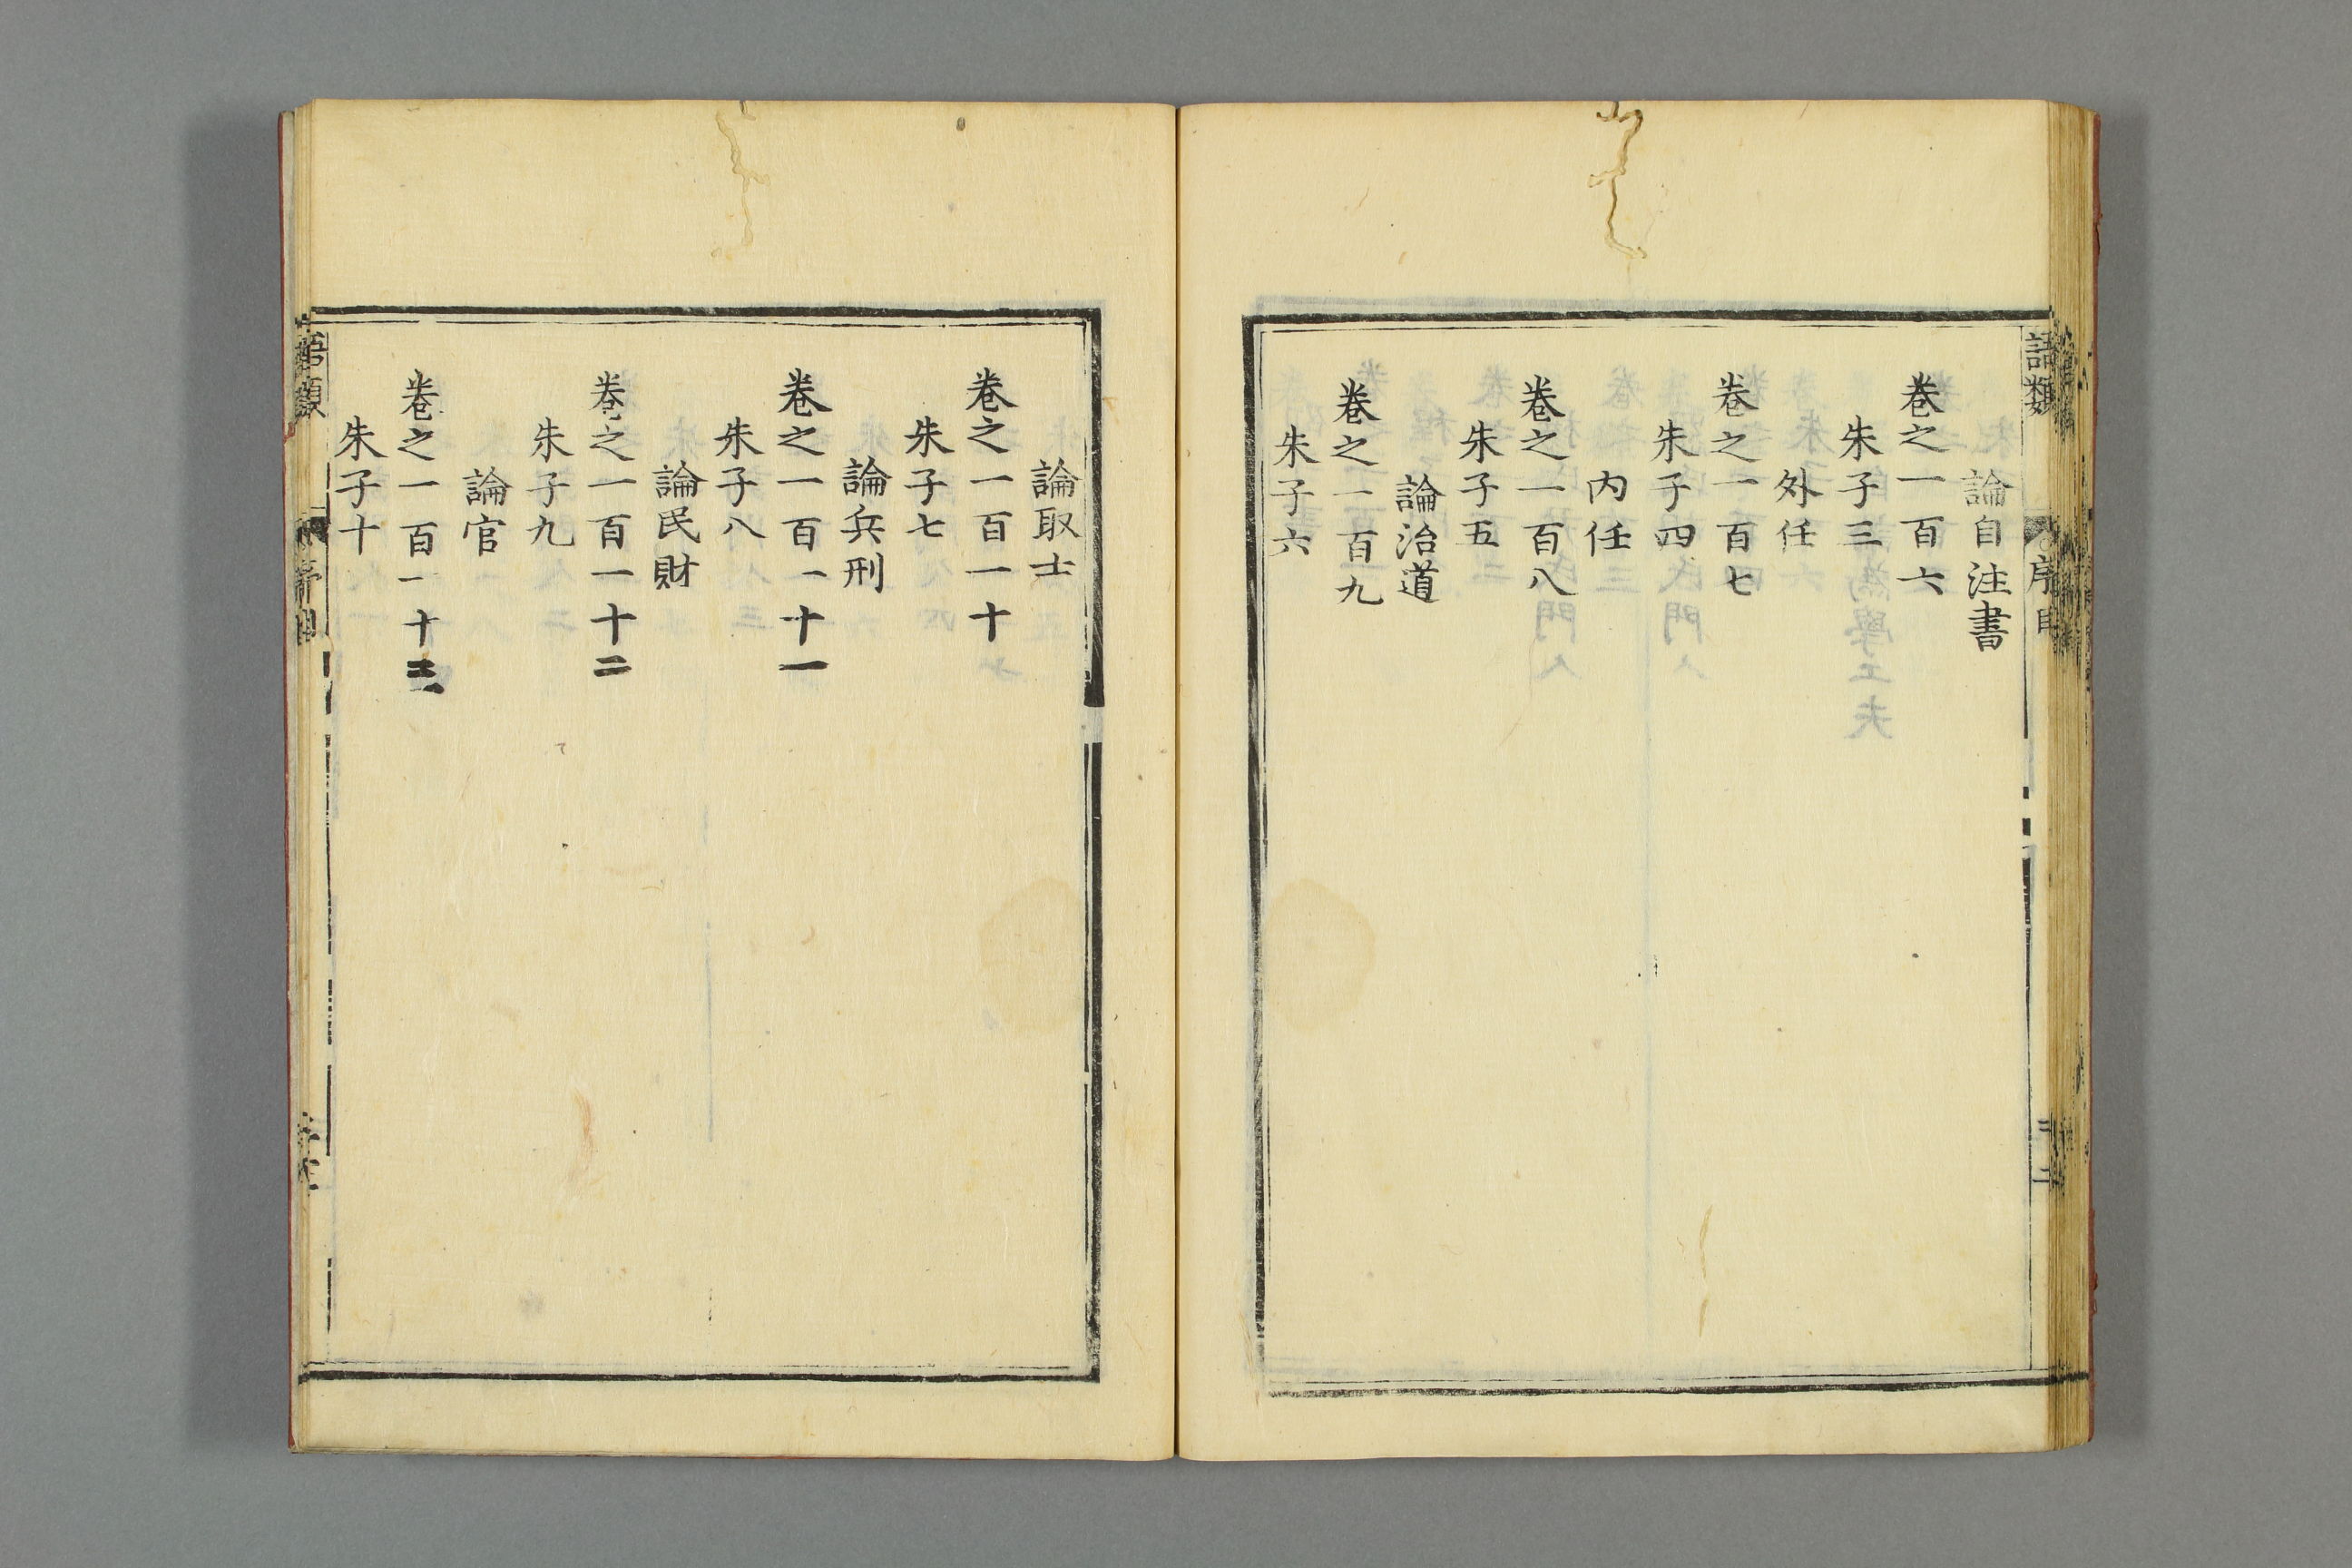 語類
序目
二
論自注書
卷之一百六
朱子三
外任
卷之一百七
朱子四
內任
卷之一百八
朱子五
論治道
卷之一百九
朱子六
論取士
卷之一百一十
朱子七
論兵刑
卷之一百一十一
朱子八
論民財
卷之一百一十二
朱子九
論官
卷之一百一十三
朱子十
語類